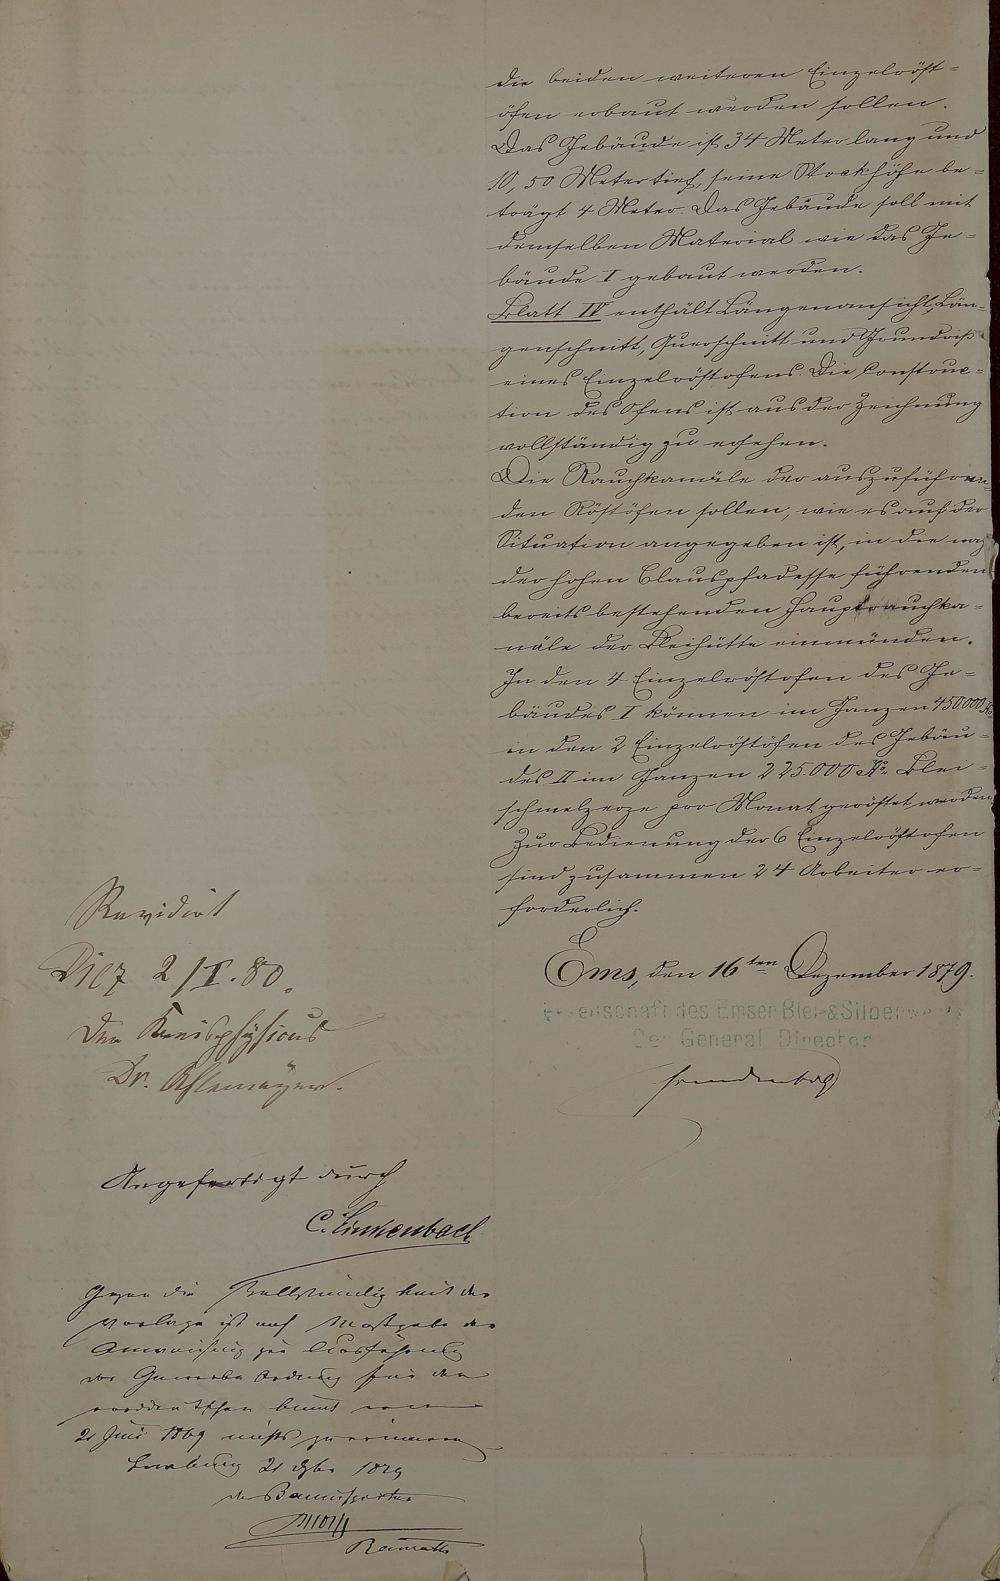 die beiden weiteren Einzelröst-
öfen erbaut werden sollen.
Das Gebäude ist 34 Meter lang und
10,50 Meter tief, seine Stockhöhe be-
trägt 4 Meter. Das Gebäude soll mit
demselben Material wie das Ge-
bäude I gebaut werden.
Blatt IV enthält Längenansicht, Län-
genschnitt, Querschnitt und Grundriß
eines Einzelröstofens. Die Construc-
tion des Ofens ist aus der Zeichnung
vollständig zu ersehen.
Die Rauchkanäle der auszuführen-
den Röstöfen sollen, wie es auf der
Situation angegeben ist, in die nach
der hohen Blauspfadesse führenden
bereits bestehenden Hauptrauchka-
näle der Bleihütte einmünden.
In den 4 Einzelröstofen des Ge-
bäudes I können im Ganzen 450000 Ko
in den 2 Einzelröstöfen des Gebäu-
des II im Ganzen 225.000 Ko Blei-
schmelzerze pro Monat geröstet werden
Zur Bedienung der 6 Einzelröstofen
sind zusammen 24 Arbeiter er-
forderlich.
Ems, den 16ten Dezember 1879.
Gewerkschaft des Emser Blei- & Silberwerks
Der General Director
Freudenberg
Revidirt
Diez 2/I. 80.
Der Kreisphysicus
Dr.
Angefertigt durch
C. Linkenbach
Gegen die Vollständigkeit der
Vorlage ist auf Maßgabe der
Anweisung zur Ausführung
der Gewerbe Ordnung für den
norddeutschen Bund vom
21 Juni 1869 nichts zu erinnern
21 Dzbr 1879
der Bauinspector
Baurath